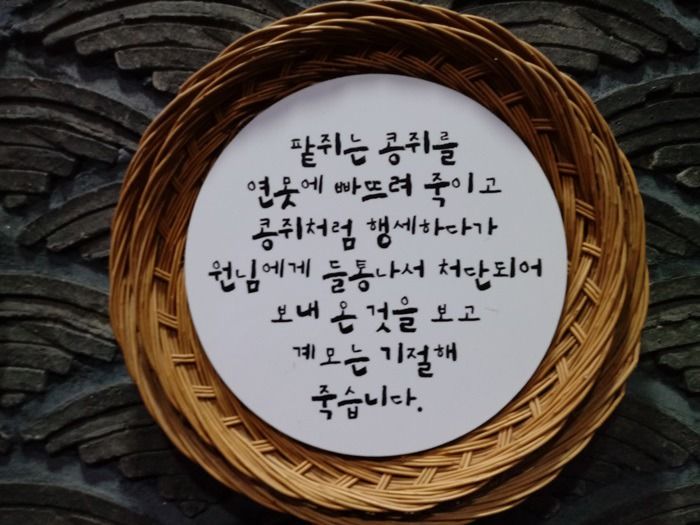 팥쥐는 콩쥐를
연못에 빠뜨려 죽이고
콩쥐처럼 행세하다가
원님에게 들통나서 처단되어
보내 온 것을 보고
계모는 기절해
죽습니다.